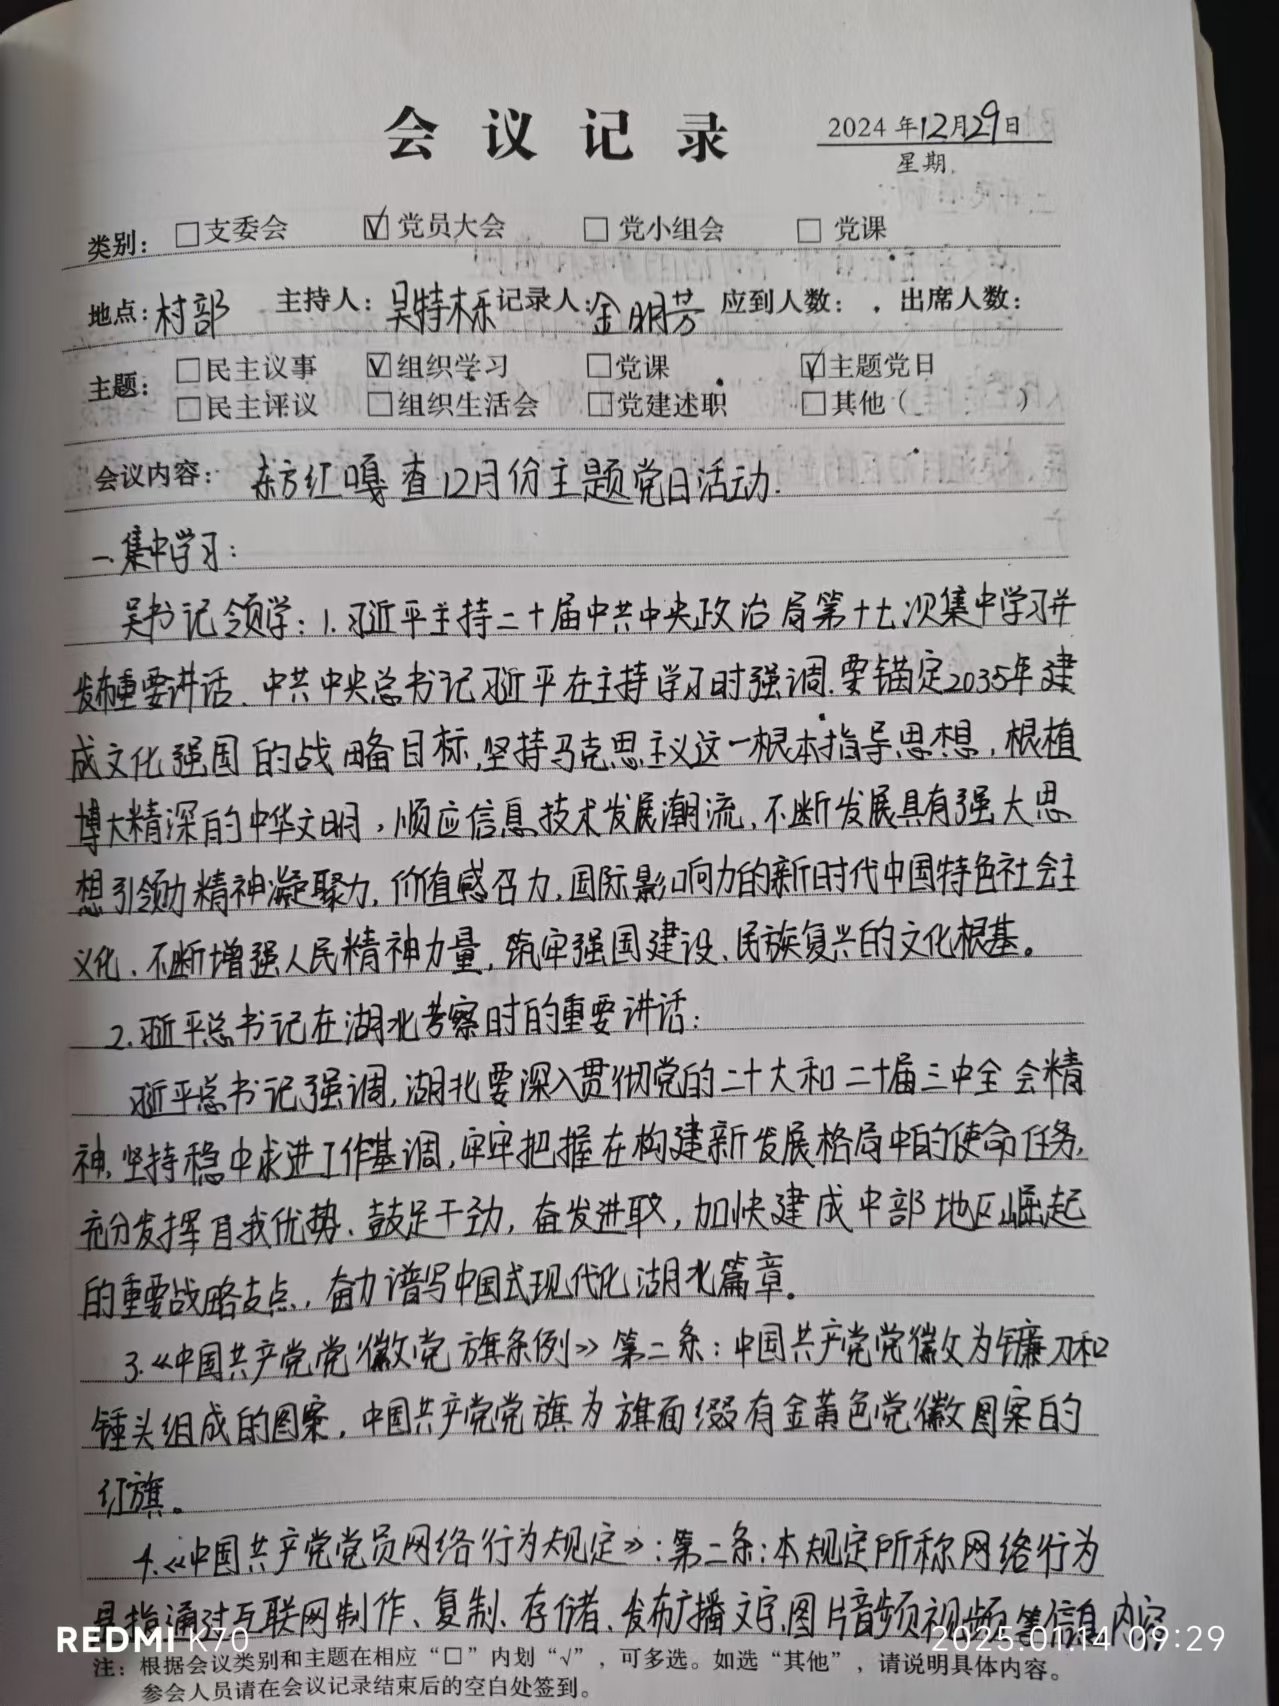 会议记录
2024年12月29日
星期.
类别: □支委会 ☑党员大会 □党小组会 □党课
地点:村部 主持人:吴特栎 记录人:金明芳 应到人数: , 出席人数:
主题: □民主议事 ☑组织学习 □党课 ☑主题党日
□民主评议 □组织生活会 □党建述职 □其他( )
会议内容: 东方红嘎查12月份主题党日活动.
一.集中学习:
吴书记领学:1.习近平主持二十届中共中央政治局第十七次集中学习并
发布重要讲话、中共中央总书记习近平在主持学习时强调.要锚定2035年建
成文化强国的战略目标,坚持马克思主义这一根本指导思想,根植
博大精深的中华文明,顺应信息技术发展潮流,不断发展具有强大思
想引领力精神凝聚力,价值感召力,国际影响力的新时代中国特色社会主
义化、不断增强人民精神力量,筑牢强国建设、民族复兴的文化根基。
2.习近平总书记在湖北考察时的重要讲话:
习近平总书记强调,湖北要深入贯彻党的二十大和二十届三中全会精
神,坚持稳中求进工作基调,牢牢把握在构建新发展格局中的使命任务,
充分发挥自我优势、鼓足干劲,奋发进取,加快建成中部地区崛起
的重要战略支点,奋力谱写中国式现代化湖北篇章。
3.《中国共产党党徽党旗条例》第二条:中国共产党党徽为镰刀和
锤头组成的图案,中国共产党党旗为旗面缀有金黄色党徽图案的
红旗。
4.《中国共产党党员网络行为规定》:第二条:本规定所称网络行为
是指通过互联网制作、复制、存储、发布广播文字,图片音频视频等信息内容
REDMI K70
2025.01.14 09:29
注:根据会议类别和主题在相应“□”内划“√”,可多选。如选“其他”,请说明具体内容。
参会人员请在会议记录结束后的空白处签到。